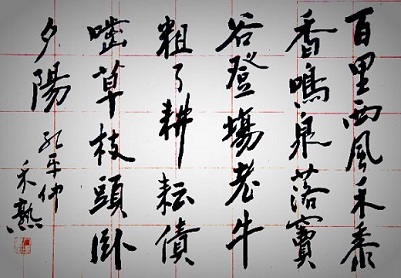 百里西風禾黍
香鳴泉落竇
谷登塲老牛
粗了耕耘債
嚙草枝頭卧
夕陽
孔平仲
禾熟